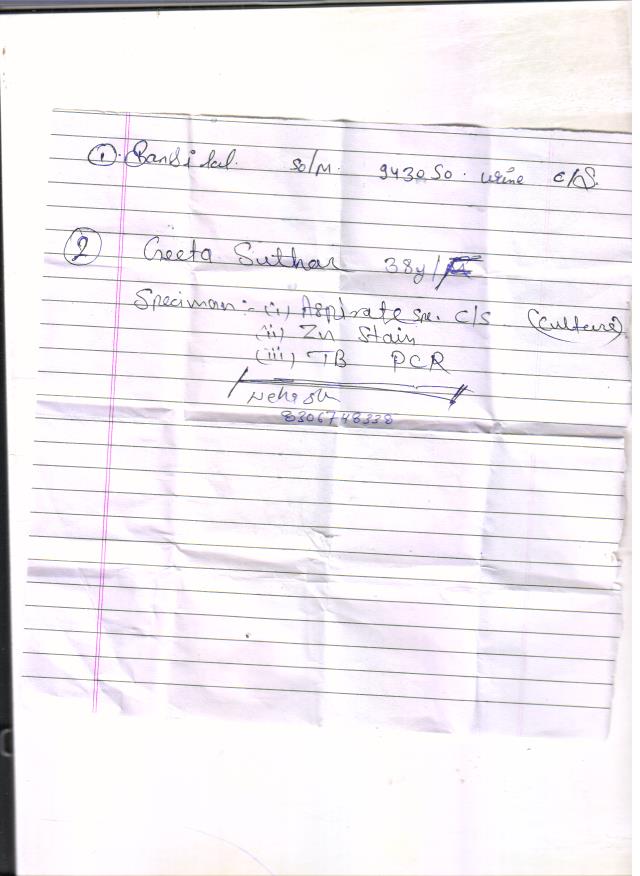 ① Bansi lal. 50/M. 943050. urine c/s.
② Geeta Suthar 38y/F
Speciman:- (i) Aspirate c/s (Culture)
(ii) Zn Stain
(iii) TB PCR
8306748338